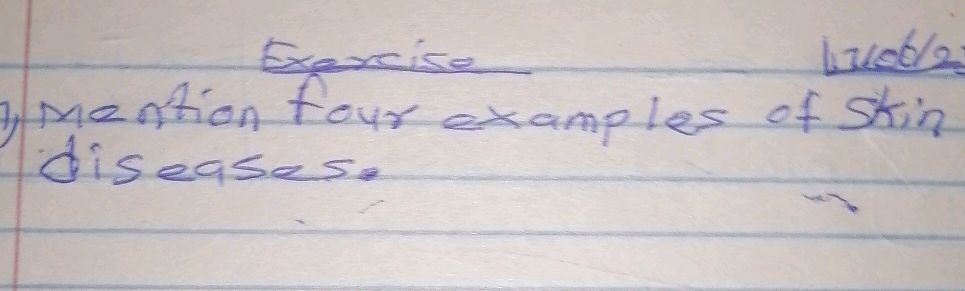 Exercise
1, Mention four examples of skin
diseases.